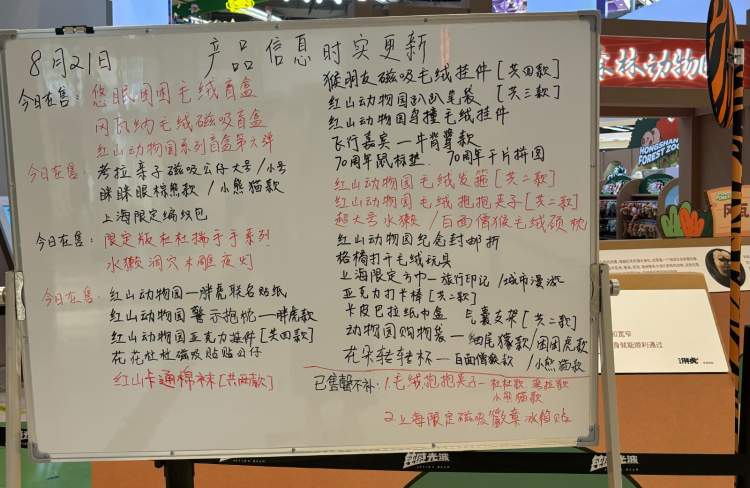 8月21日 产品信息时实更新
今日在售: 悠眠困困毛绒盲盒
阿瓦纳毛绒磁吸盲盒
红山动物园系列盲盒第六弹
今日在售: 考拉亲子磁吸公仔大号/小号
眯眯眼棕熊款/小熊猫款
上海限定编织包
今日在售: 限定版杜杜揣手手系列
水獭洞穴木雕夜灯
今日在售: 红山动物园—胖虎联名贴纸
红山动物园警示抱枕—胖虎款
红山动物园亚克力挂件[共四款]
花花杜杜磁吸贴贴公仔
红山卡通棉袜[共两款]
猴朋友磁吸毛绒挂件[共四款]
红山动物园趴趴笔袋[共三款]
红山动物园身撞毛绒挂件
飞行嘉宾—牛背鹭款
70周年鼠标垫 70周年千片拼图
红山动物园毛绒发箍[共二款]
红山动物园毛绒抱抱夹子[共二款]
超大号水獭/白面僧猴毛绒颈枕
红山动物园纪念封邮折
格桶打干毛绒玩具
上海限定方巾—旅行印记/城市漫游
亚克力打卡棒[共二款]
卡皮巴拉纸巾盒 气囊支架[共二款]
动物园购物袋—细尾獴款/困困虎款
花朵转转杯—白面僧猴款/小熊猫款
已售罄不补: 1.毛绒抱抱夹子—杜杜款 莫拉款
小熊猫款
2.上海限定磁吸徽章冰箱贴
森林动物园
HONGSHAN
FOREST ZOO
钝感光波
钝感光波